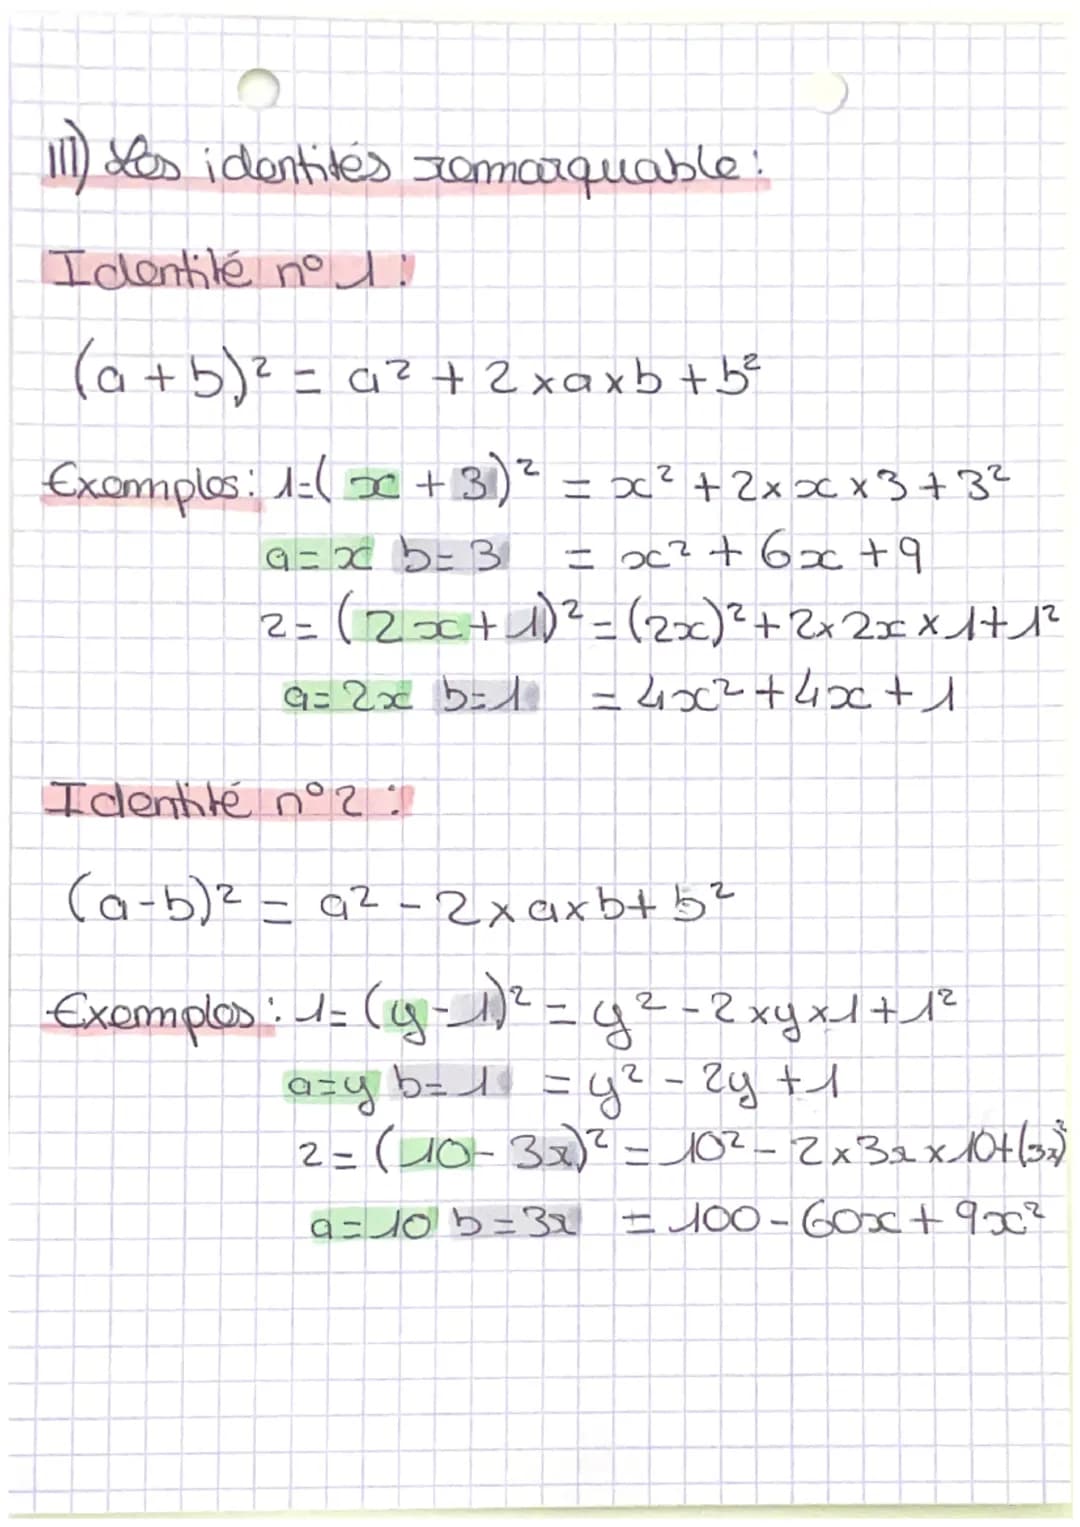 III) Les identités remarquable:
Identité n° 1:
(a+b)² = a² + 2×a×b + b²
Exemples: 1=( x + 3)² = x² + 2× x ×3 + 3²
a = x b = 3 = x² + 6x + 9
2= (2x+1)² = (2x)² + 2×2x×1+1²
a= 2x b=1 = 4x² + 4x + 1
Identité n°2 :
(a-b)² = a² - 2×a×b + b²
Exemples: 1= (y-1)² = y² - 2×y×1+1²
a=y b= 1 = y² - 2y +1
2 = (10- 3x)² = 10² - 2×3x×10+(3x)²
a=10 b=3x = 100-60x + 9x²